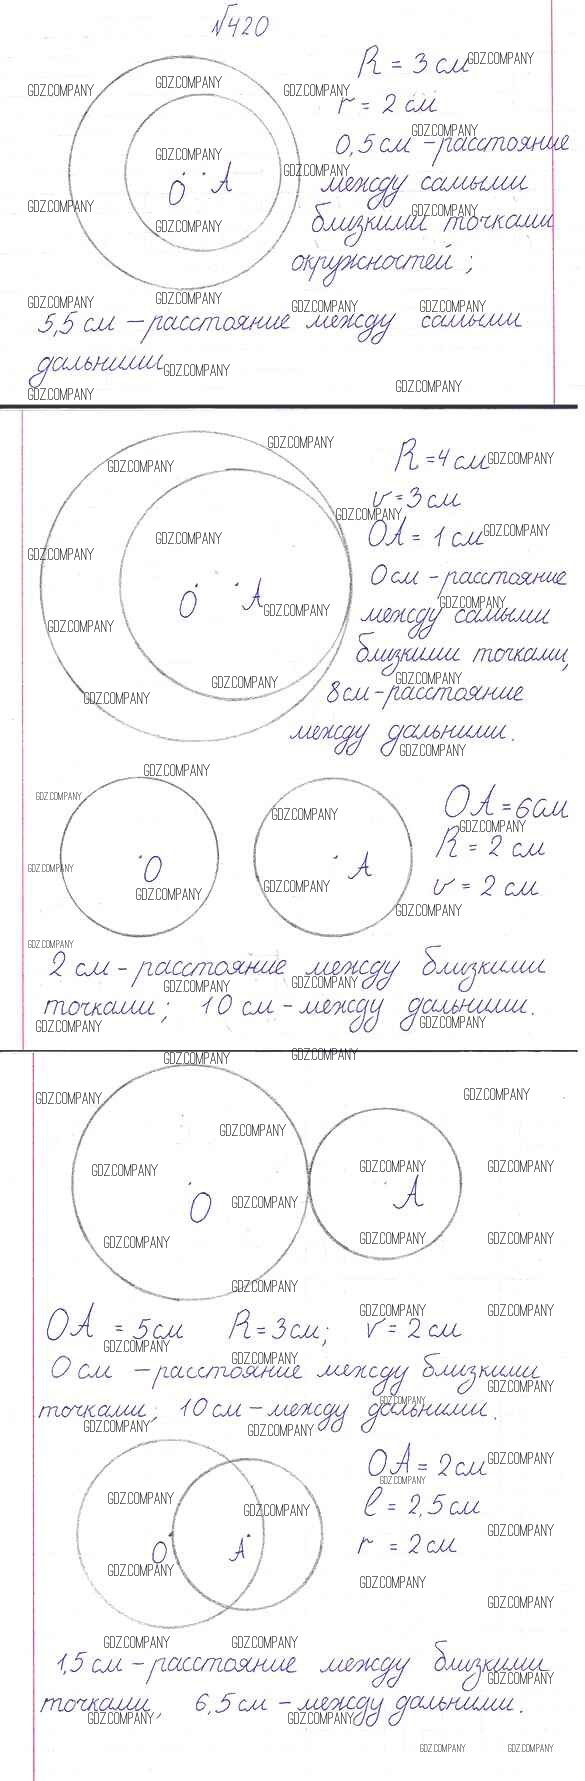 №420
R = 3 см
r = 2 см
0,5 см – расстояние
между самыми
близкими точками
окружностей;
5,5 см – расстояние между самыми
дальними
O A
R = 4 см
r = 3 см
OA = 1 см
0 см – расстояние
между самыми
близкими точками,
8 см – расстояние
между дальними.
O A
OA = 6 см
R = 2 см
r = 2 см
O A
2 см – расстояние между близкими
точками; 10 см – между дальними.
O A
OA = 5 см R = 3 см; r = 2 см
0 см – расстояние между близкими
точками; 10 см – между дальними.
OA = 2 см
l = 2,5 см
r = 2 см
O A
1,5 см – расстояние между близкими
точками, 6,5 см – между дальними.
GDZ.COMPANY